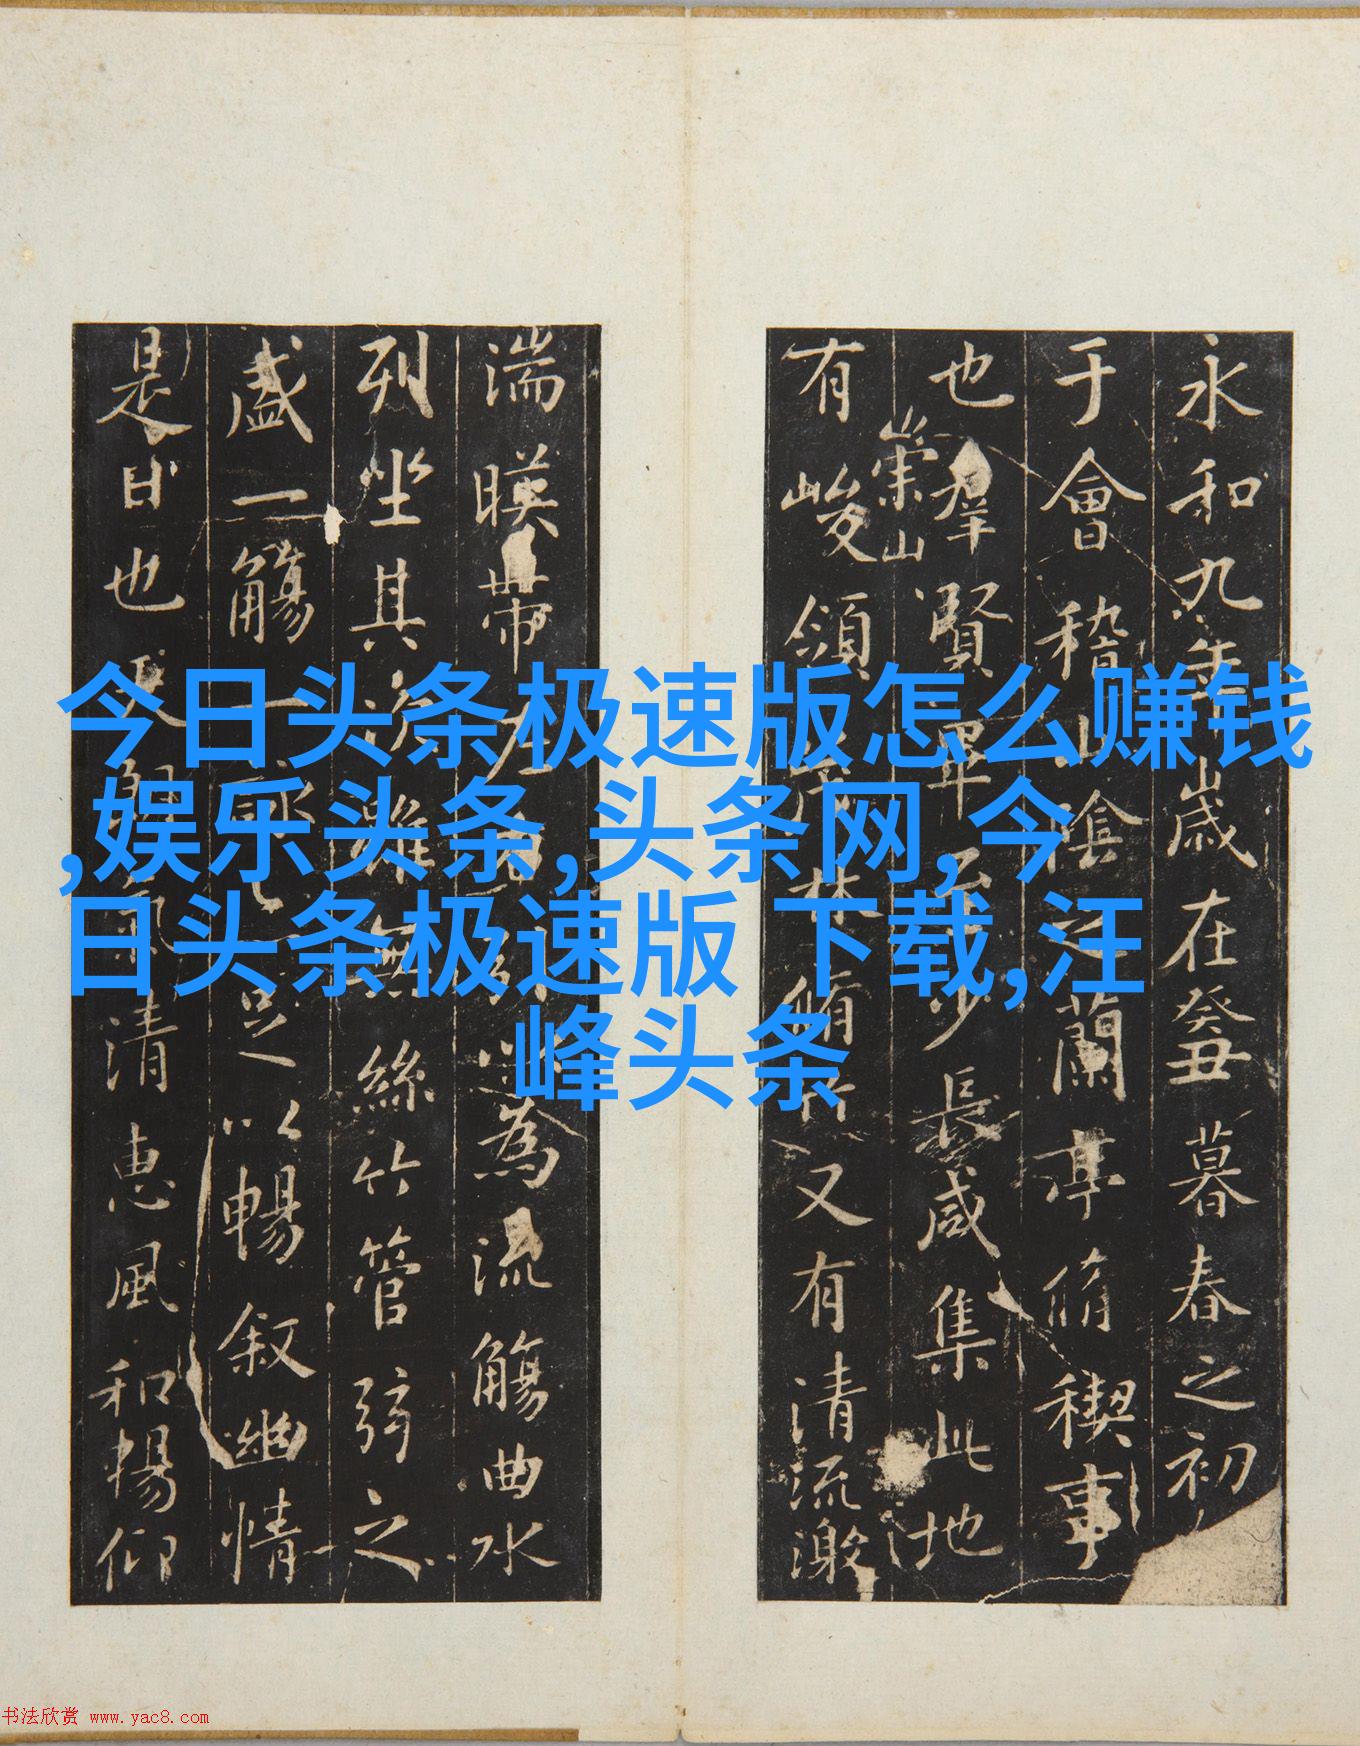 永和九年歲在癸丑暮春之初
于會稽山陰之蘭亭脩禊事
也羣賢畢至少長咸集此地
崇山
有峻領茂林脩竹又有清流激
湍暎帶左右為流觴曲水
列坐其次雖無絲竹管弦之
盛一觴一詠足以暢敘幽情
是日也天朗氣清惠風和暢仰
今日头条极速版怎么赚钱
,娱乐头条,头条网,今
日头条极速版 下载,汪
峰头条
书法欣赏 www.yac8.com